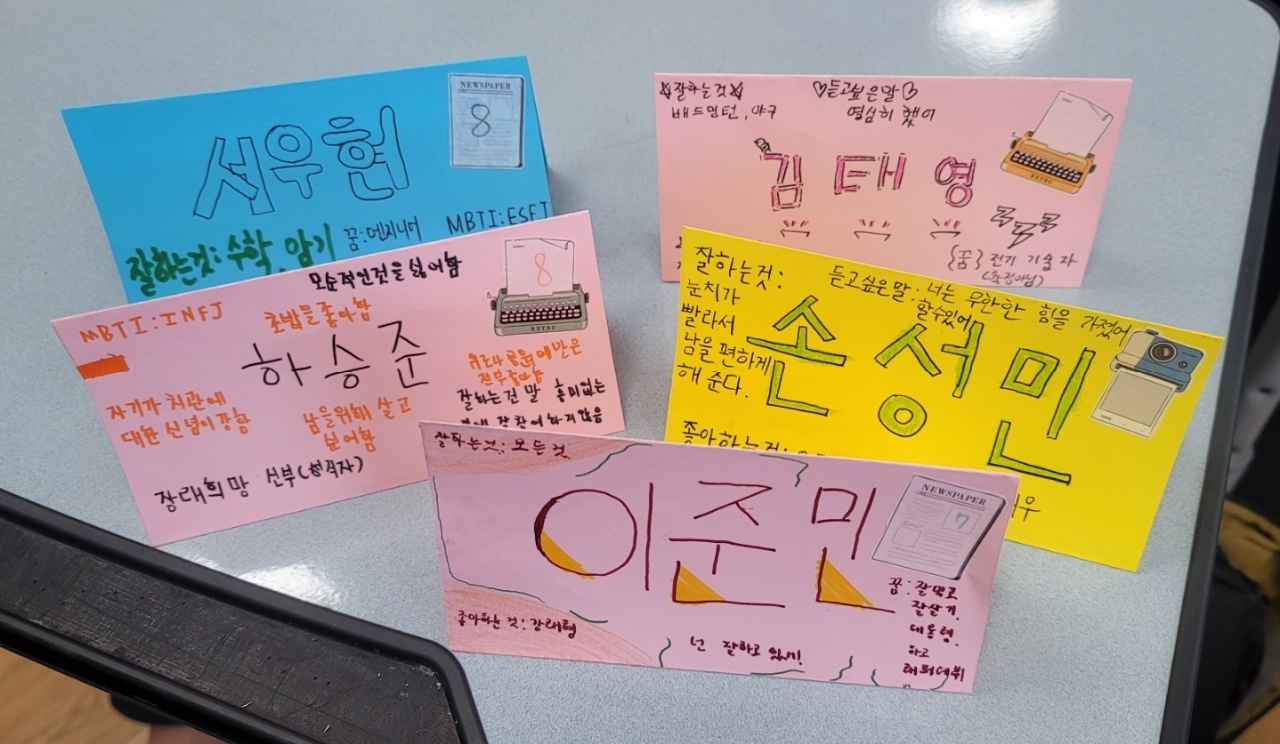 NEWSPAPER
8
서우현
잘하는것: 수학, 암기
꿈:엔지니어
MBTI:ESFJ
잘하는것
배드민턴, 야구
듣고싶은말
열심히 했어
김태영
RETRO
{꿈} 전기 기술자
MBTI:INFJ
모순적인것을 싫어함
초밥을좋아함
8
RETRO
하승준
자기가치관에
대한 신념이강함
남을위해 살고
싶어함
전부좋아함
잘하는건 말 흥미없는
장래희망 신부(성직자)
잘하는것:
눈치가
빨라서
남을 편하게
해 준다.
듣고싶은말: 너는 무한한 힘을 가졌어
할수있어
손성민
좋아하는것:
잘하는것: 모든것
이준민
NEWSPAPER
7
좋아하는 것: 강래협
넌 잘하고 있서!
꿈: 잘먹고
잘살기,
대통령,
하고
래퍼데뷔